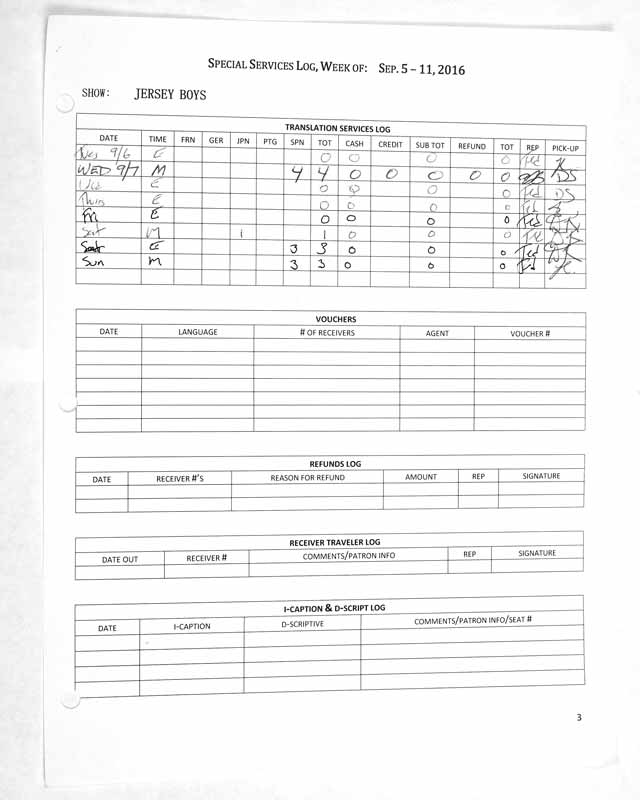 SPECIAL SERVICES LOG, WEEK OF: SEP. 5 – 11, 2016
SHOW: JERSEY BOYS
TRANSLATION SERVICES LOG
DATE TIME FRN GER JPN PTG SPN TOT CASH CREDIT SUB TOT REFUND TOT REP PICK-UP
9/6 E 0 0 0 0 Ted K
WED 9/7 M 4 4 0 0 0 0 0 DS
Wed E 0 0 0 0 Ted DS
Thurs E 0 0 0 0 Ted
Fri E 0 0 0 0 Ted
Sat M 1 1 0 0 0 Ted
Sat E 3 3 0 0 0 Ted
Sun M 3 3 0 0 0 Ted K.
VOUCHERS
DATE LANGUAGE # OF RECEIVERS AGENT VOUCHER #
REFUNDS LOG
DATE RECEIVER #'S REASON FOR REFUND AMOUNT REP SIGNATURE
RECEIVER TRAVELER LOG
DATE OUT RECEIVER # COMMENTS/PATRON INFO REP SIGNATURE
I-CAPTION & D-SCRIPT LOG
DATE I-CAPTION D-SCRIPTIVE COMMENTS/PATRON INFO/SEAT #
3